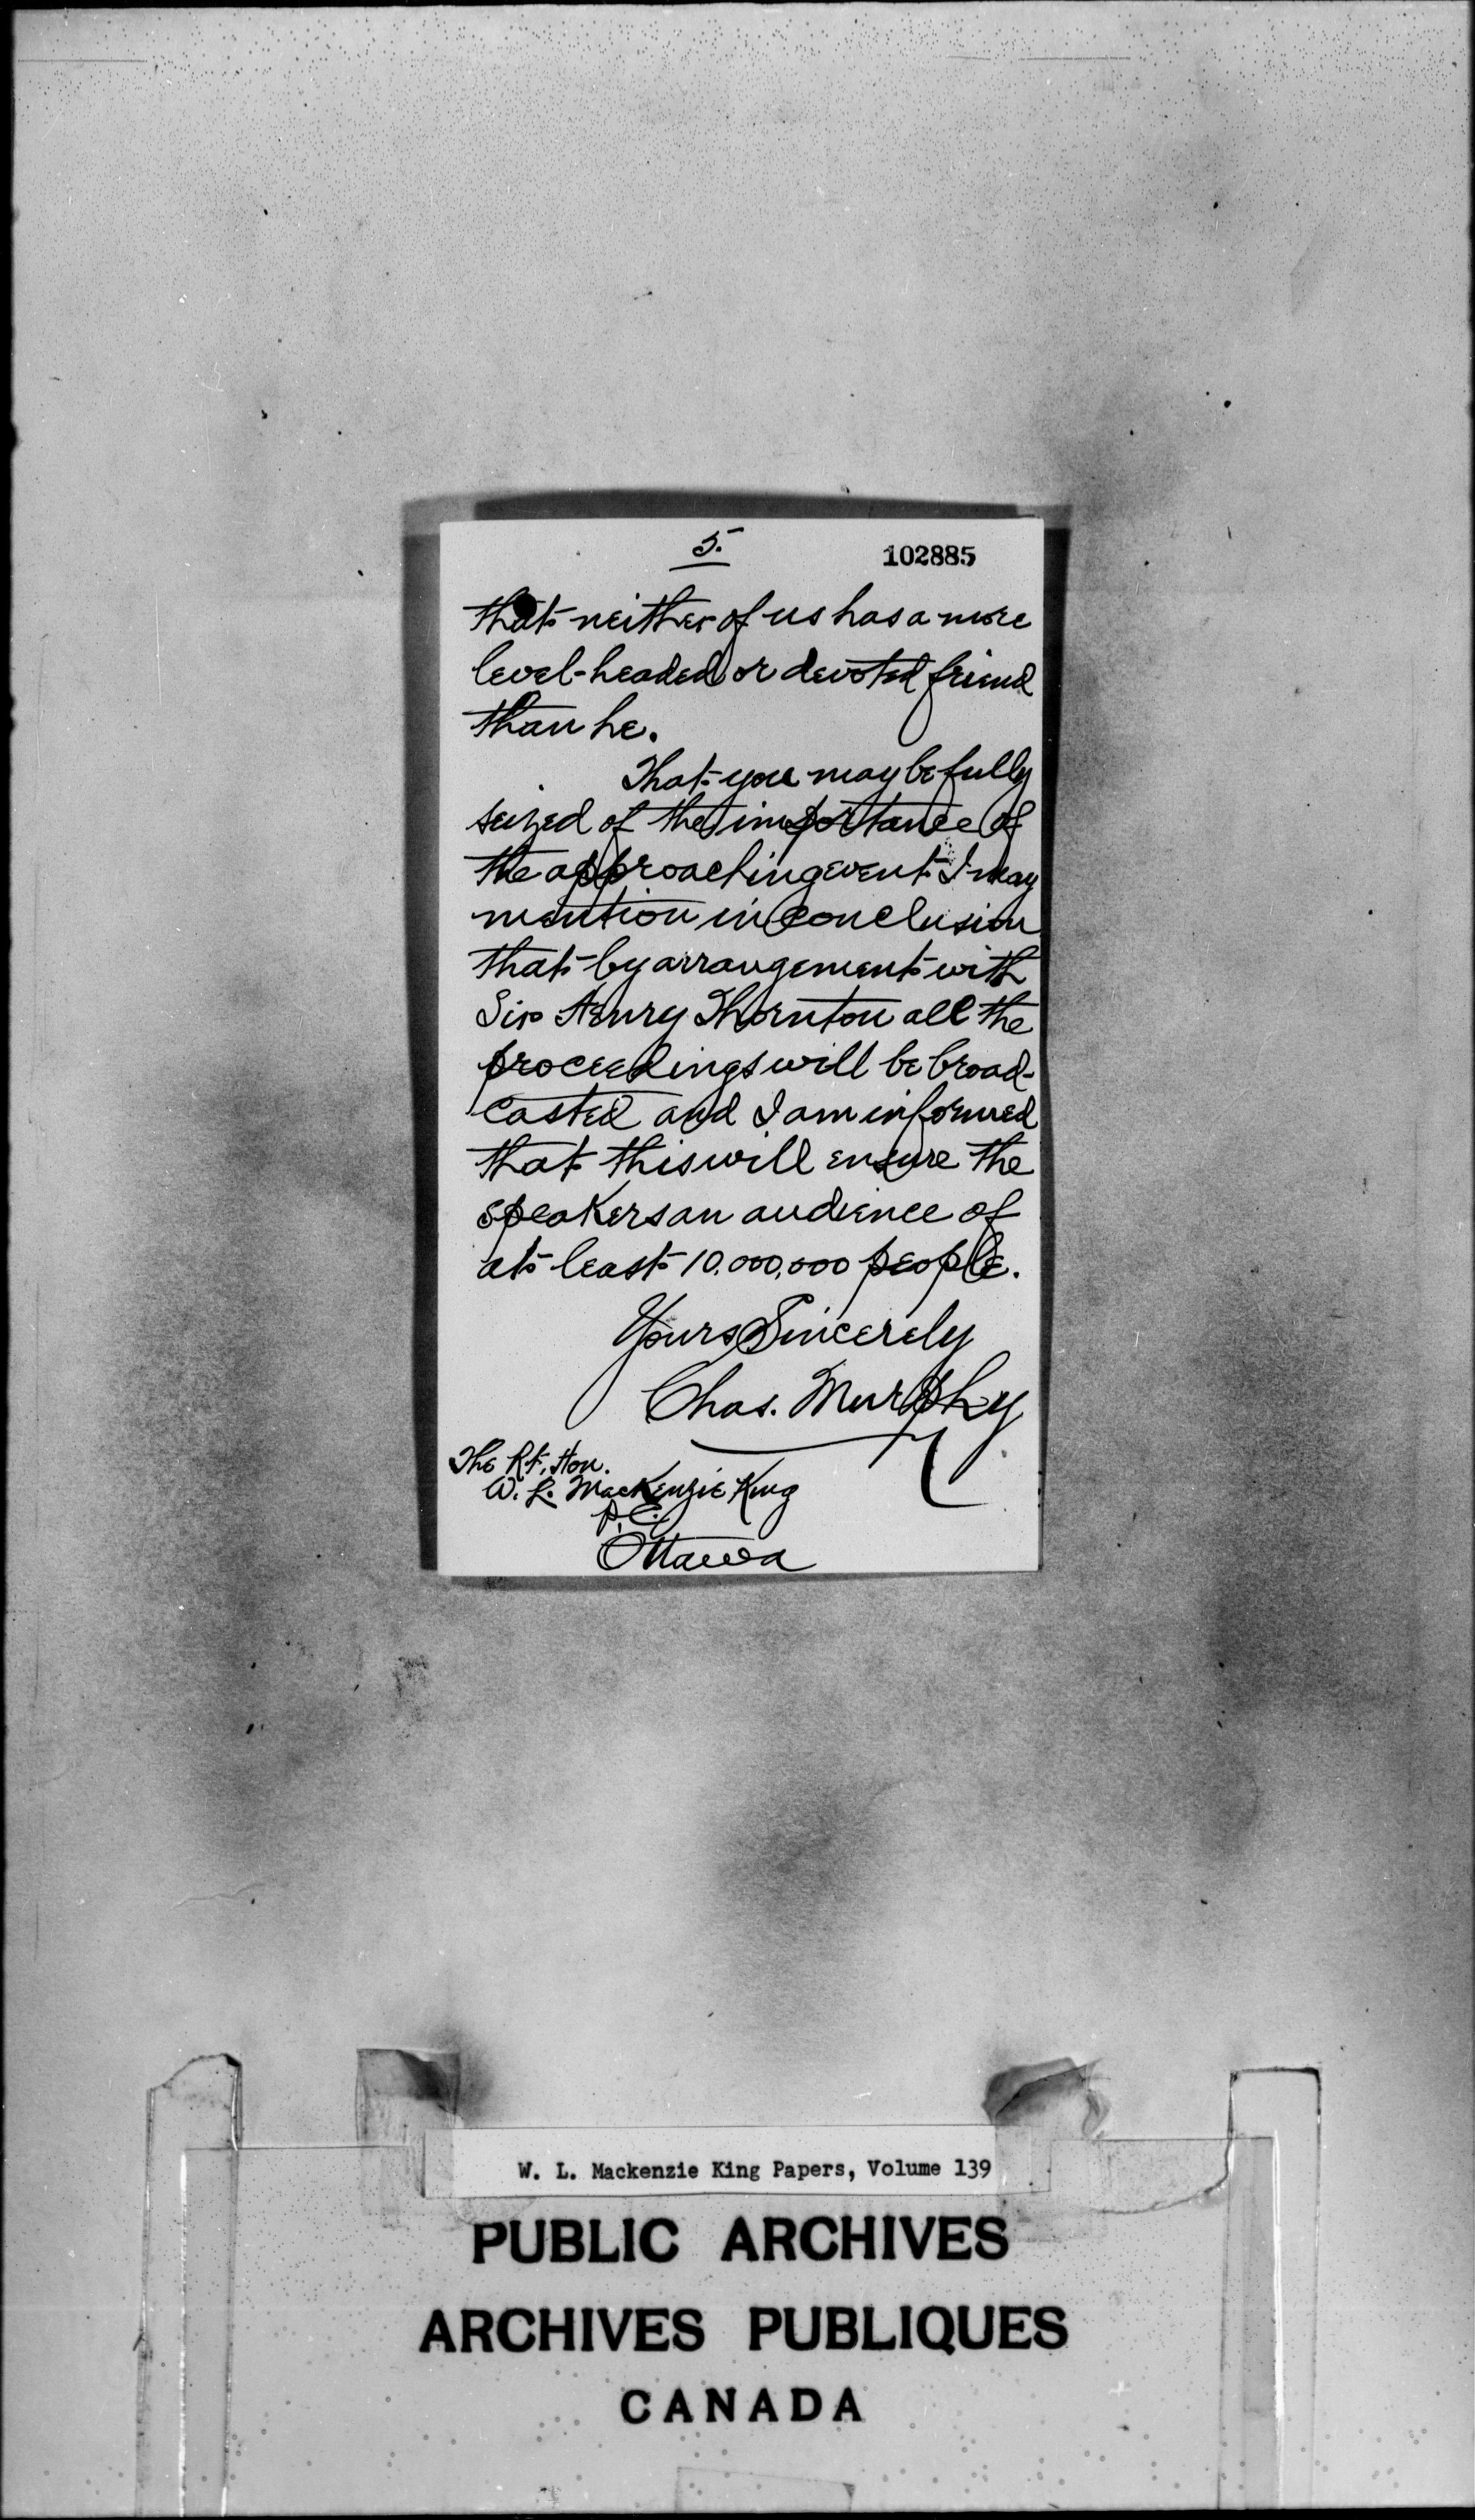 5.
102885
that neither of us has a more
level-headed or devoted friend
than he.
That you may be fully
seized of the importance of
the approaching event I may
mention in conclusion
that by arrangement with
Sir Henry Thornton all the
proceedings will be broad-
casted and I am informed
that this will ensure the
speakers an audience of
at least 10,000,000 people.
Yours Sincerely
Chas. Murphy
The Rt. Hon.
W. L. MacKenzie King
P.C.
Ottawa
W. L. Mackenzie King Papers, Volume 139
PUBLIC ARCHIVES
ARCHIVES PUBLIQUES
CANADA